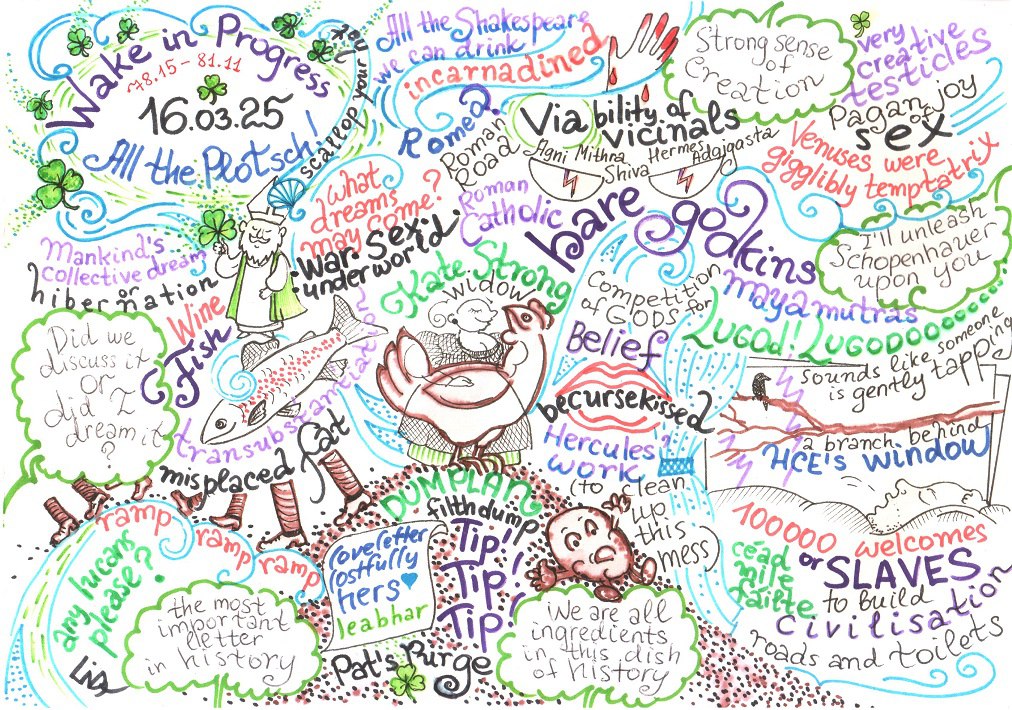 Wake in Progress
78.15 – 81.11
16.03.25
All the Plotsch!
scallop your
All the Shakespeare
we can drink
incarnadined
Strong sense
of
Creation
very
creative
testicles
Pagan joy
of
sex
Venuses were
gigglibly temptatrix
Romea
Roman
Road
Roman
Catholic
Viability of
vicinals
Agni Mithra
Shiva
Hermes
Adajgasta
bare godkins
I'll unleash
Schopenhauer
upon you
what
dreams
may come?
War. Sex'd
underworld
Mankind's
collective dream
or
hibernation
Wine
Fish
transubstantiation
Kate Strong
widow
Competition
of GODS for
Belief
becursekissed
Hercules'
work
(to clean
up
this
mess)
mayamutras
LUGOd! LUGODOOoooo
sounds like someone
is gently tapping
a branch behind
HCE's window
Did we
discuss it
or
did I
dream it
?
misplaced fat
ramp
ramp
ramp
any lucans
please?
Liv
the most
important
letter
in history
DUMPLAN
filthdump
loveletter
lostfully
hers
leabhar
Tip!
Tip!
Tip!
Pat's Purge
We are all
ingredients
in this dish
of history
100000 welcomes
céad
mile
failte
or SLAVES
to build
civilisation
roads and toilets